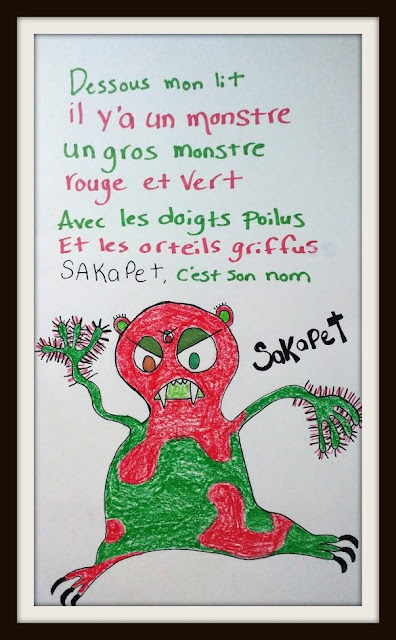 Dessous mon lit
il y'a un monstre
un gros monstre
rouge et vert
Avec les doigts poilus
Et les orteils griffus
SAKAPET, c'est son nom
SAKAPET